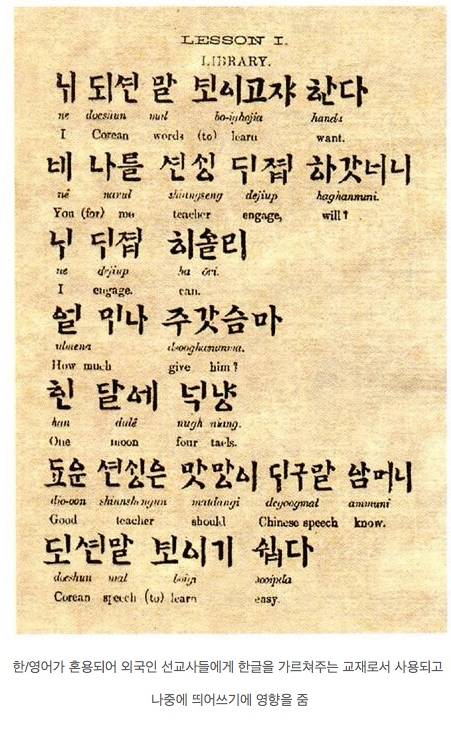 LESSON I.
LIBRARY.
뉘 되션 말 보이고쟈 한다
ne doeshun mal bo-ighojia handa
I Corean words (to) learn want.
네 나를 션싕 듸졉 하갓너니
nê narul shiungseng dejiup haghannuni.
You (for) me teacher engage, will ?
뉘 듸졉 히올리
ne dejiup ha ori.
I engage. can.
얼 미나 주갓슴마
ulmena dsooghanunma.
How much give him ?
한 달에 넉냥
han dalê nugh niang.
One moon four taels.
됴운 션싕은 맛망이 듸구말 암머니
dio-oon shiunshengun matdangi degoogmal ammuni
Good teacher should Chinese speech know.
되션말 보이기 쉽다
doeshun mal boigi sooipda
Corean speech (to) learn easy.
한/영어가 혼용되어 외국인 선교사들에게 한글을 가르쳐주는 교재로서 사용되고
나중에 띄어쓰기에 영향을 줌